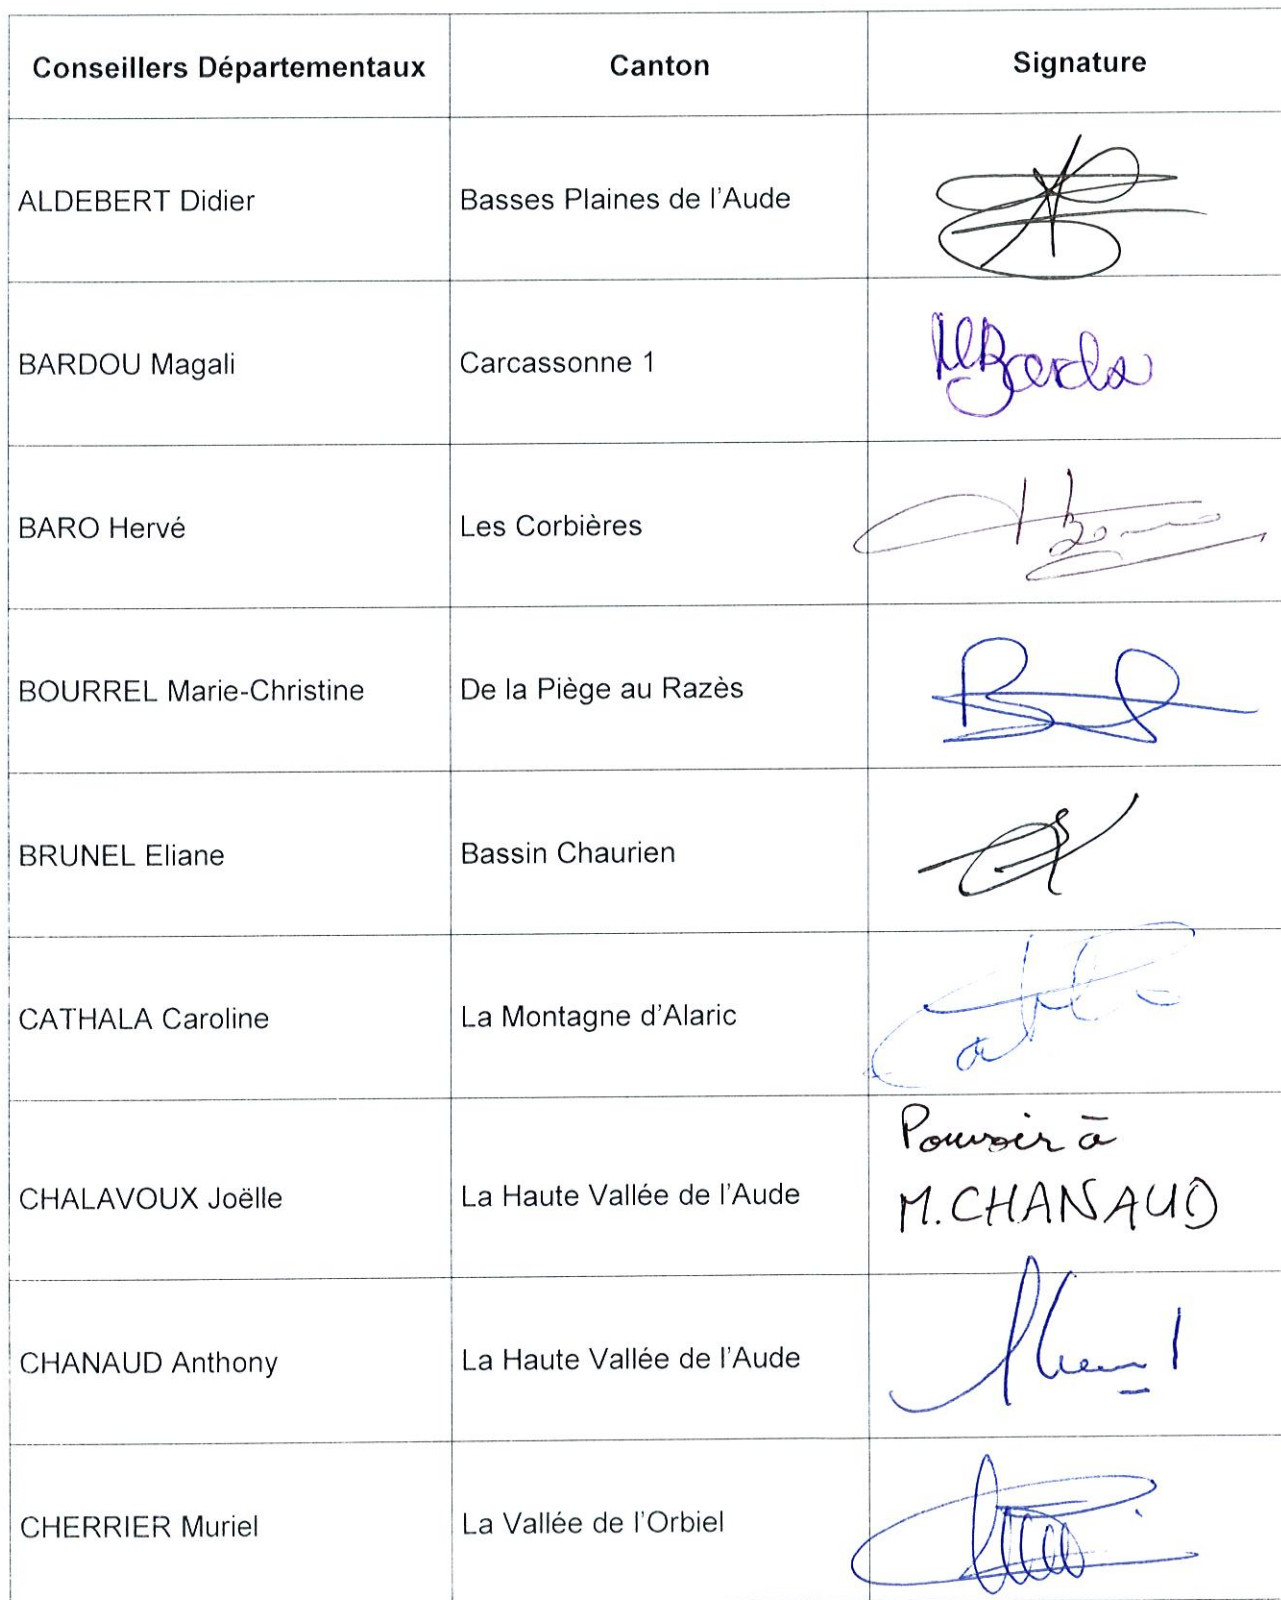 Conseillers Départementaux Canton Signature
ALDEBERT Didier Basses Plaines de l'Aude
BARDOU Magali Carcassonne 1
BARO Hervé Les Corbières
BOURREL Marie-Christine De la Piège au Razès
BRUNEL Eliane Bassin Chaurien
CATHALA Caroline La Montagne d'Alaric
Pouvoir à
CHALAVOUX Joëlle La Haute Vallée de l'Aude M. CHANAUD
CHANAUD Anthony La Haute Vallée de l'Aude
CHERRIER Muriel La Vallée de l'Orbiel